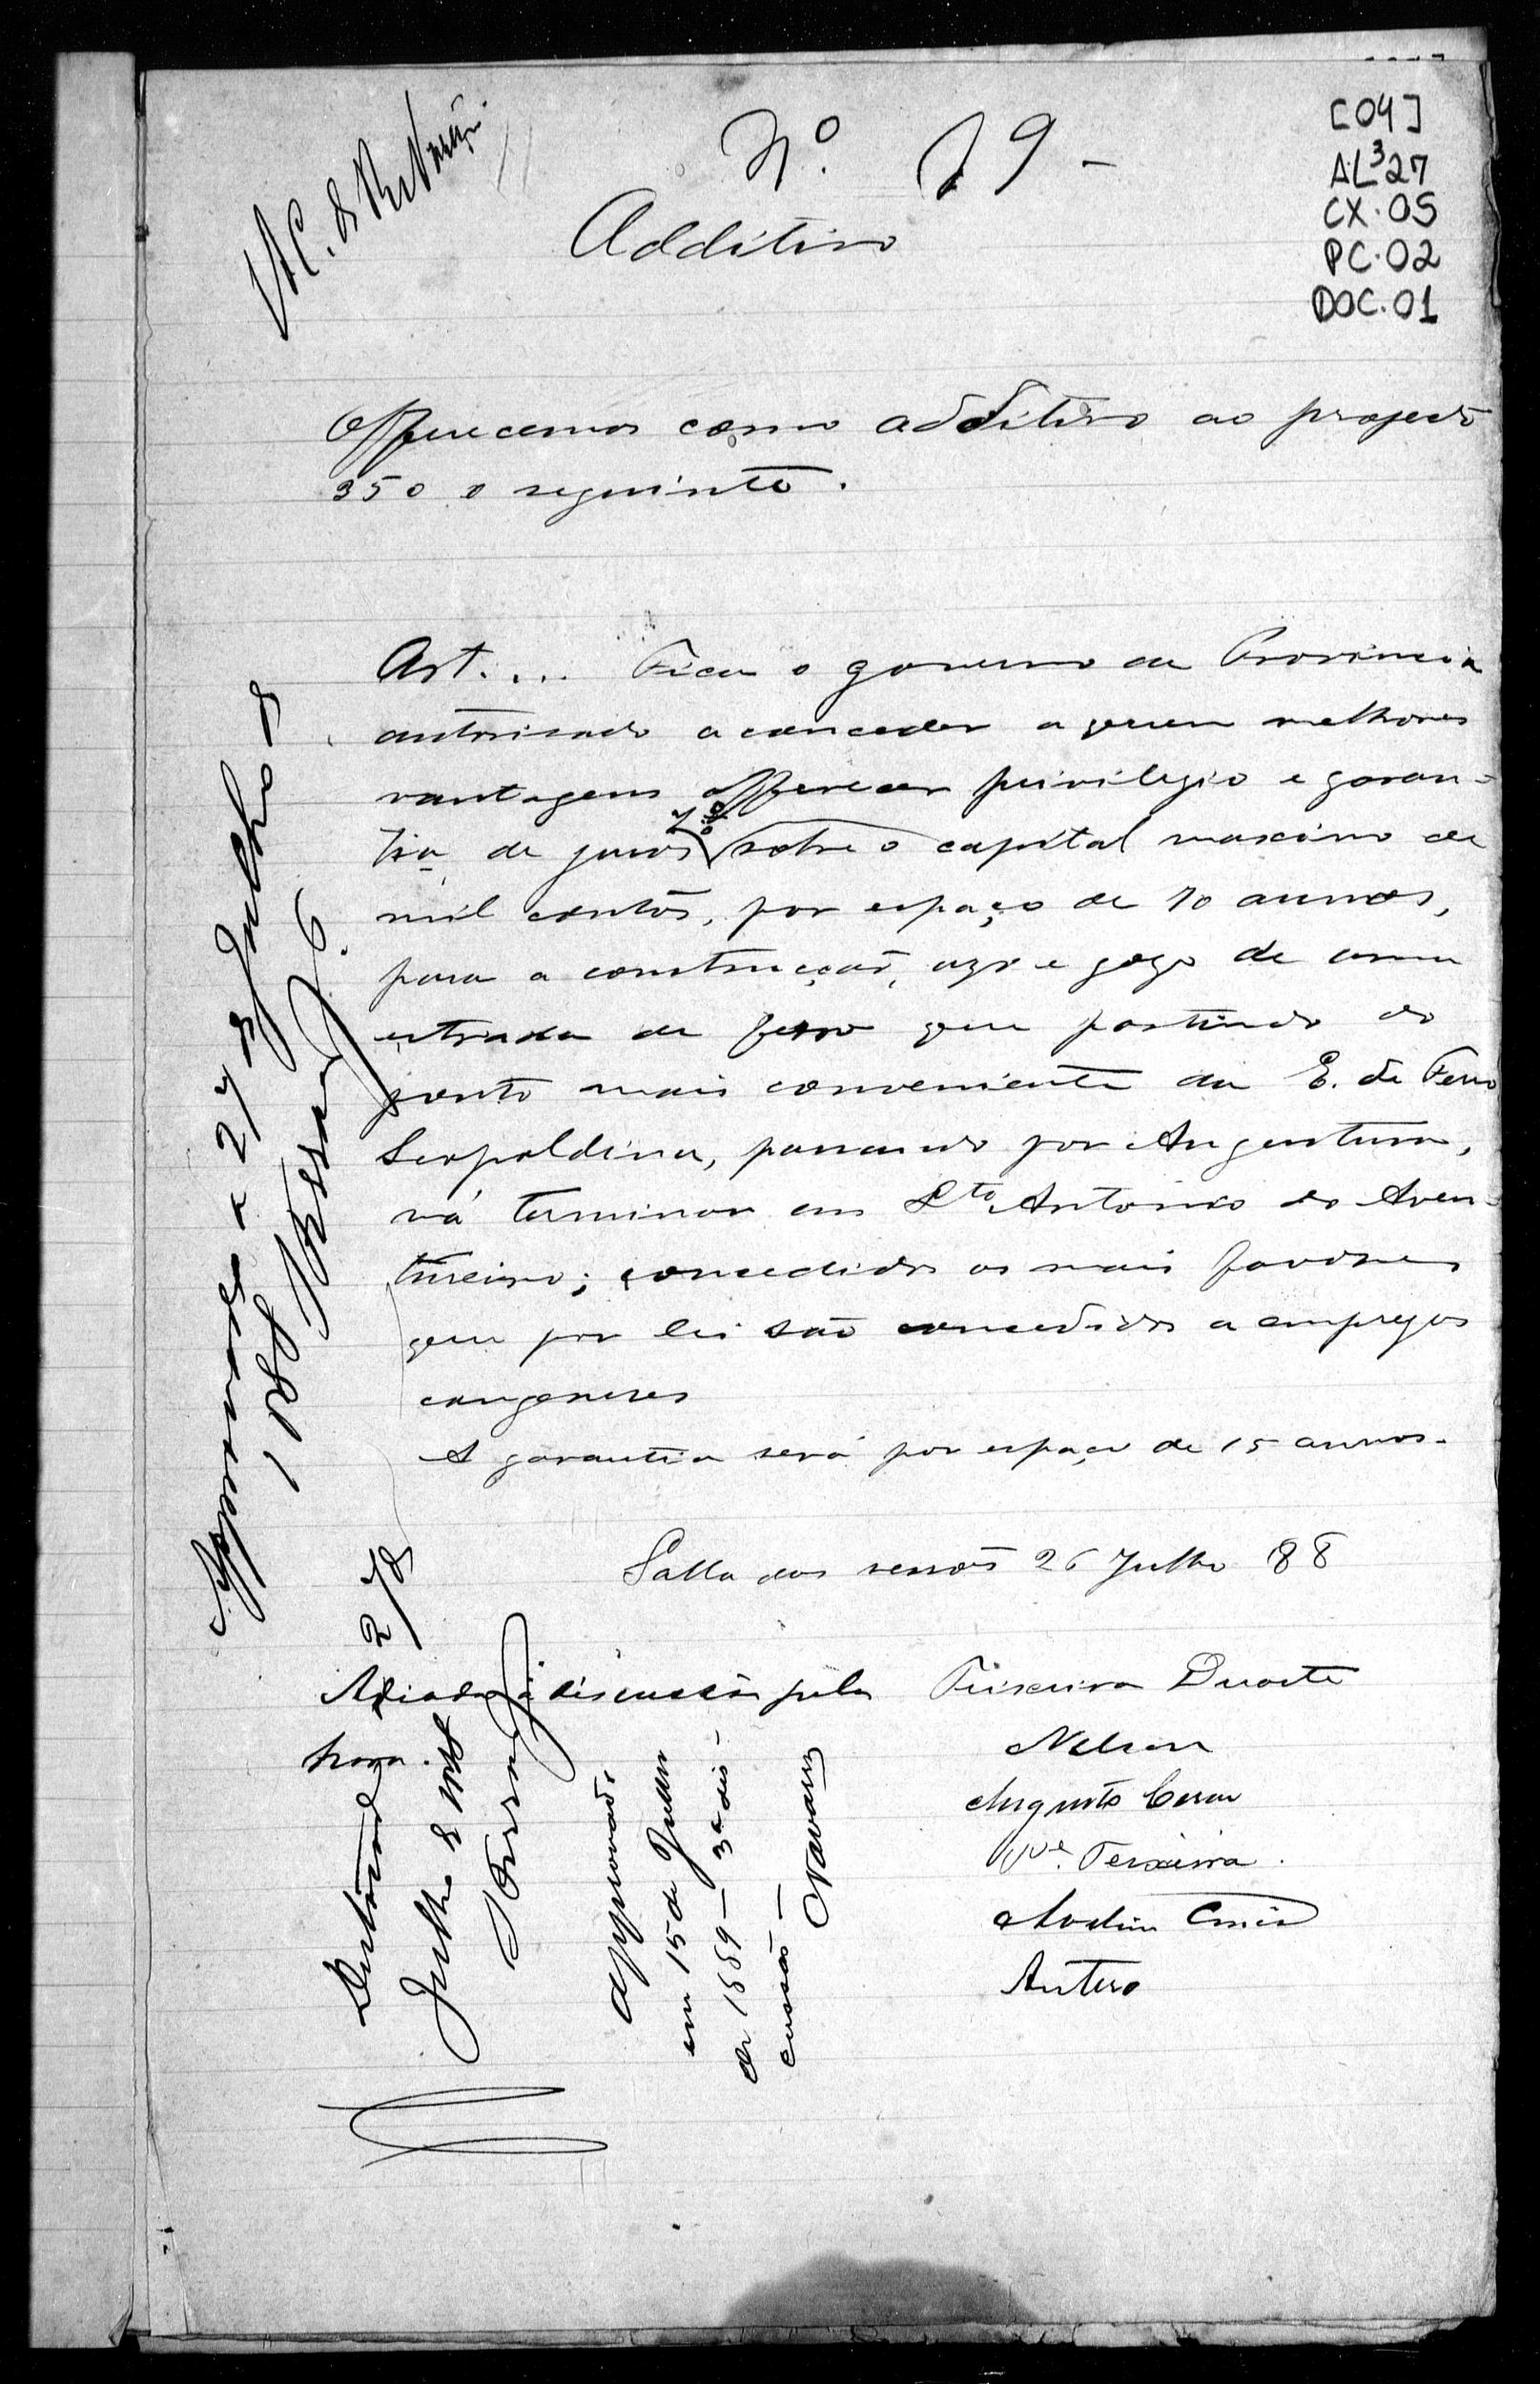 Nº. 19 -
[04]
AL³27
CX.05
PC.02
DOC.01
Additivo
Offerecemos como additivo ao projecto
350 o seguinte.
Art. ... Fica o governo da Provincia
autorisado a conceder a quem melhores
vantagens offerecer privilegio e garan-
tia de juros 7 % sobre o capital maximo de
mil contos, por espaço de 10 annos,
para a construcção, uzo e gozo de uma
estrada de ferro que partindo do
ponto mais conveniente da E. de Ferro
Leopoldina, passando por Angustura,
vá terminar em Sto Antonio do Aven-
tureiro; concedidos os mais favores
que por lei são concedidos a emprezas
congeneres
A garantia será por espaço de 15 annos.
Salla das sessões 26 Julho 88
Teixeira Duarte
Nelson
Augusto Cesar
Teixeira.
Antero
Approvado a 27 de Julho de
1888
Adiada a discussão pela
hora.
27
Julho
approvado
em 15 de Julho
de 1889 — 3ª dis-
cussão —
Navarro